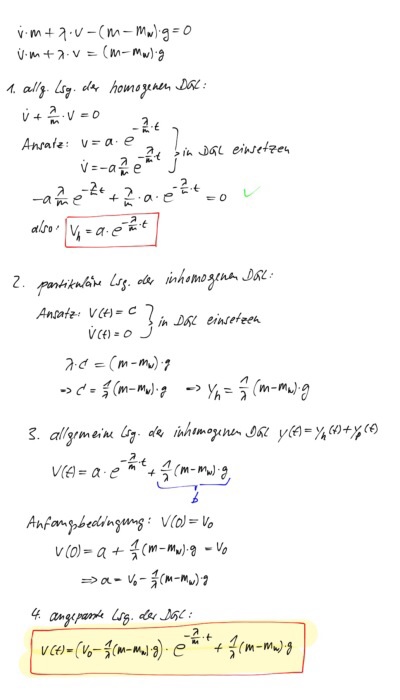 v̇·m + λ·v − (m−m_w)·g = 0
v̇·m + λ·v = (m−m_w)·g
1. allg. Lsg. der homogenen DGL:
v̇ + λ/m · v = 0
Ansatz: v = a · e^(−λ/m·t)
v̇ = −a λ/m e^(−λ/m t) } in DGL einsetzen
−a λ/m e^(−λ/m t) + λ/m · a · e^(−λ/m·t) = 0 ✓
also: v_h = a · e^(−λ/m·t)
2. partikuläre Lsg. der inhomogenen DGL:
Ansatz: v(t) = c
v̇(t) = 0 } in DGL einsetzen
λ·c = (m−m_w)·g
⇒ c = 1/λ (m−m_w)·g ⇒ y_h = 1/λ (m−m_w)·g
3. allgemeine Lsg. der inhomogenen DGL y(t) = y_h(t) + y_p(t)
v(t) = a · e^(−λ/m·t) + 1/λ (m−m_w)·g
b
Anfangsbedingung: v(0) = v₀
v(0) = a + 1/λ (m−m_w)·g = v₀
⇒ a = v₀ − 1/λ (m−m_w)·g
4. angepasste Lsg. der DGL:
v(t) = (v₀ − 1/λ (m−m_w)·g) · e^(−λ/m·t) + 1/λ (m−m_w)·g